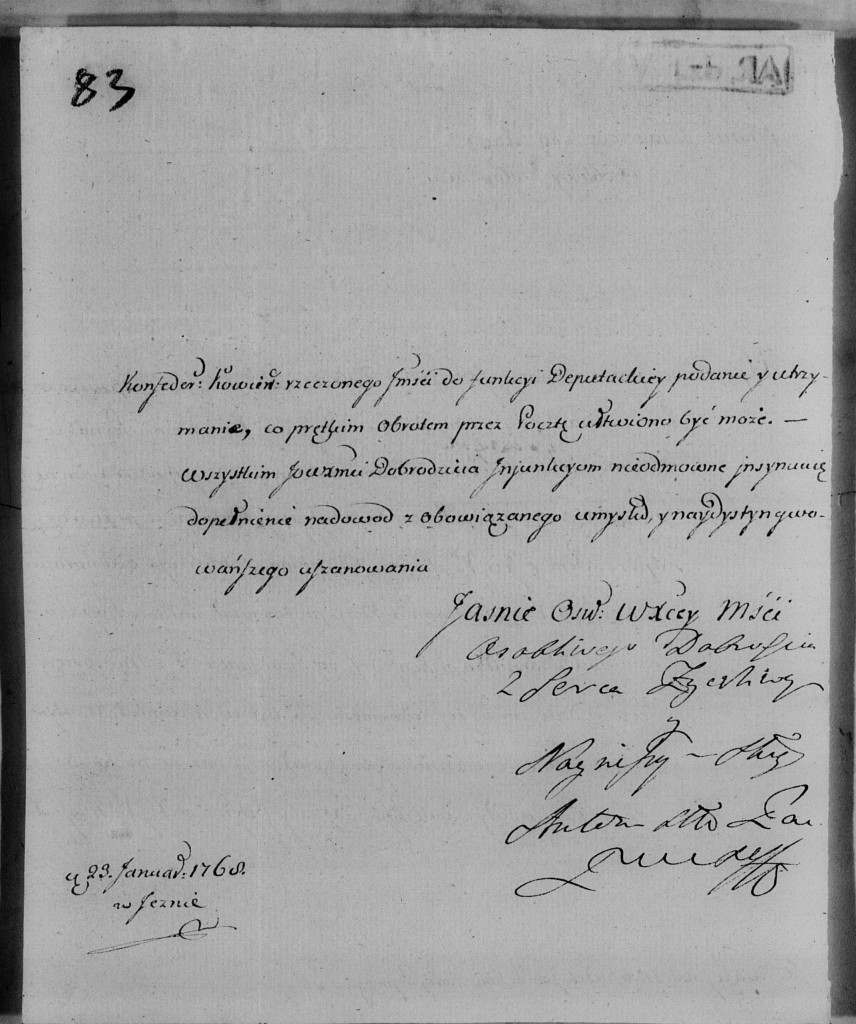 83
Konfeder: Kowień: rzeczonego Jmści do funkcyi Deputackiey podanie y utrzy-
manie, co prętkim obrotem przez Pocztę ułtwiono być może. —
wszystkim JoWXmci Dobrodzieia Injunkcyom nieodmowne jnsynuuię
dopełnienie nadowod z obowiązanego umysłu, y naydystyngwo-
wańszego uszanowania
Jasnie Osw: WXcey Mści
Osobliwego Dobrodzieia
z Serca Zyczliwy
y
Nayniższy Sługa
Antoni
23. Januar: 1768.
w Jeznie